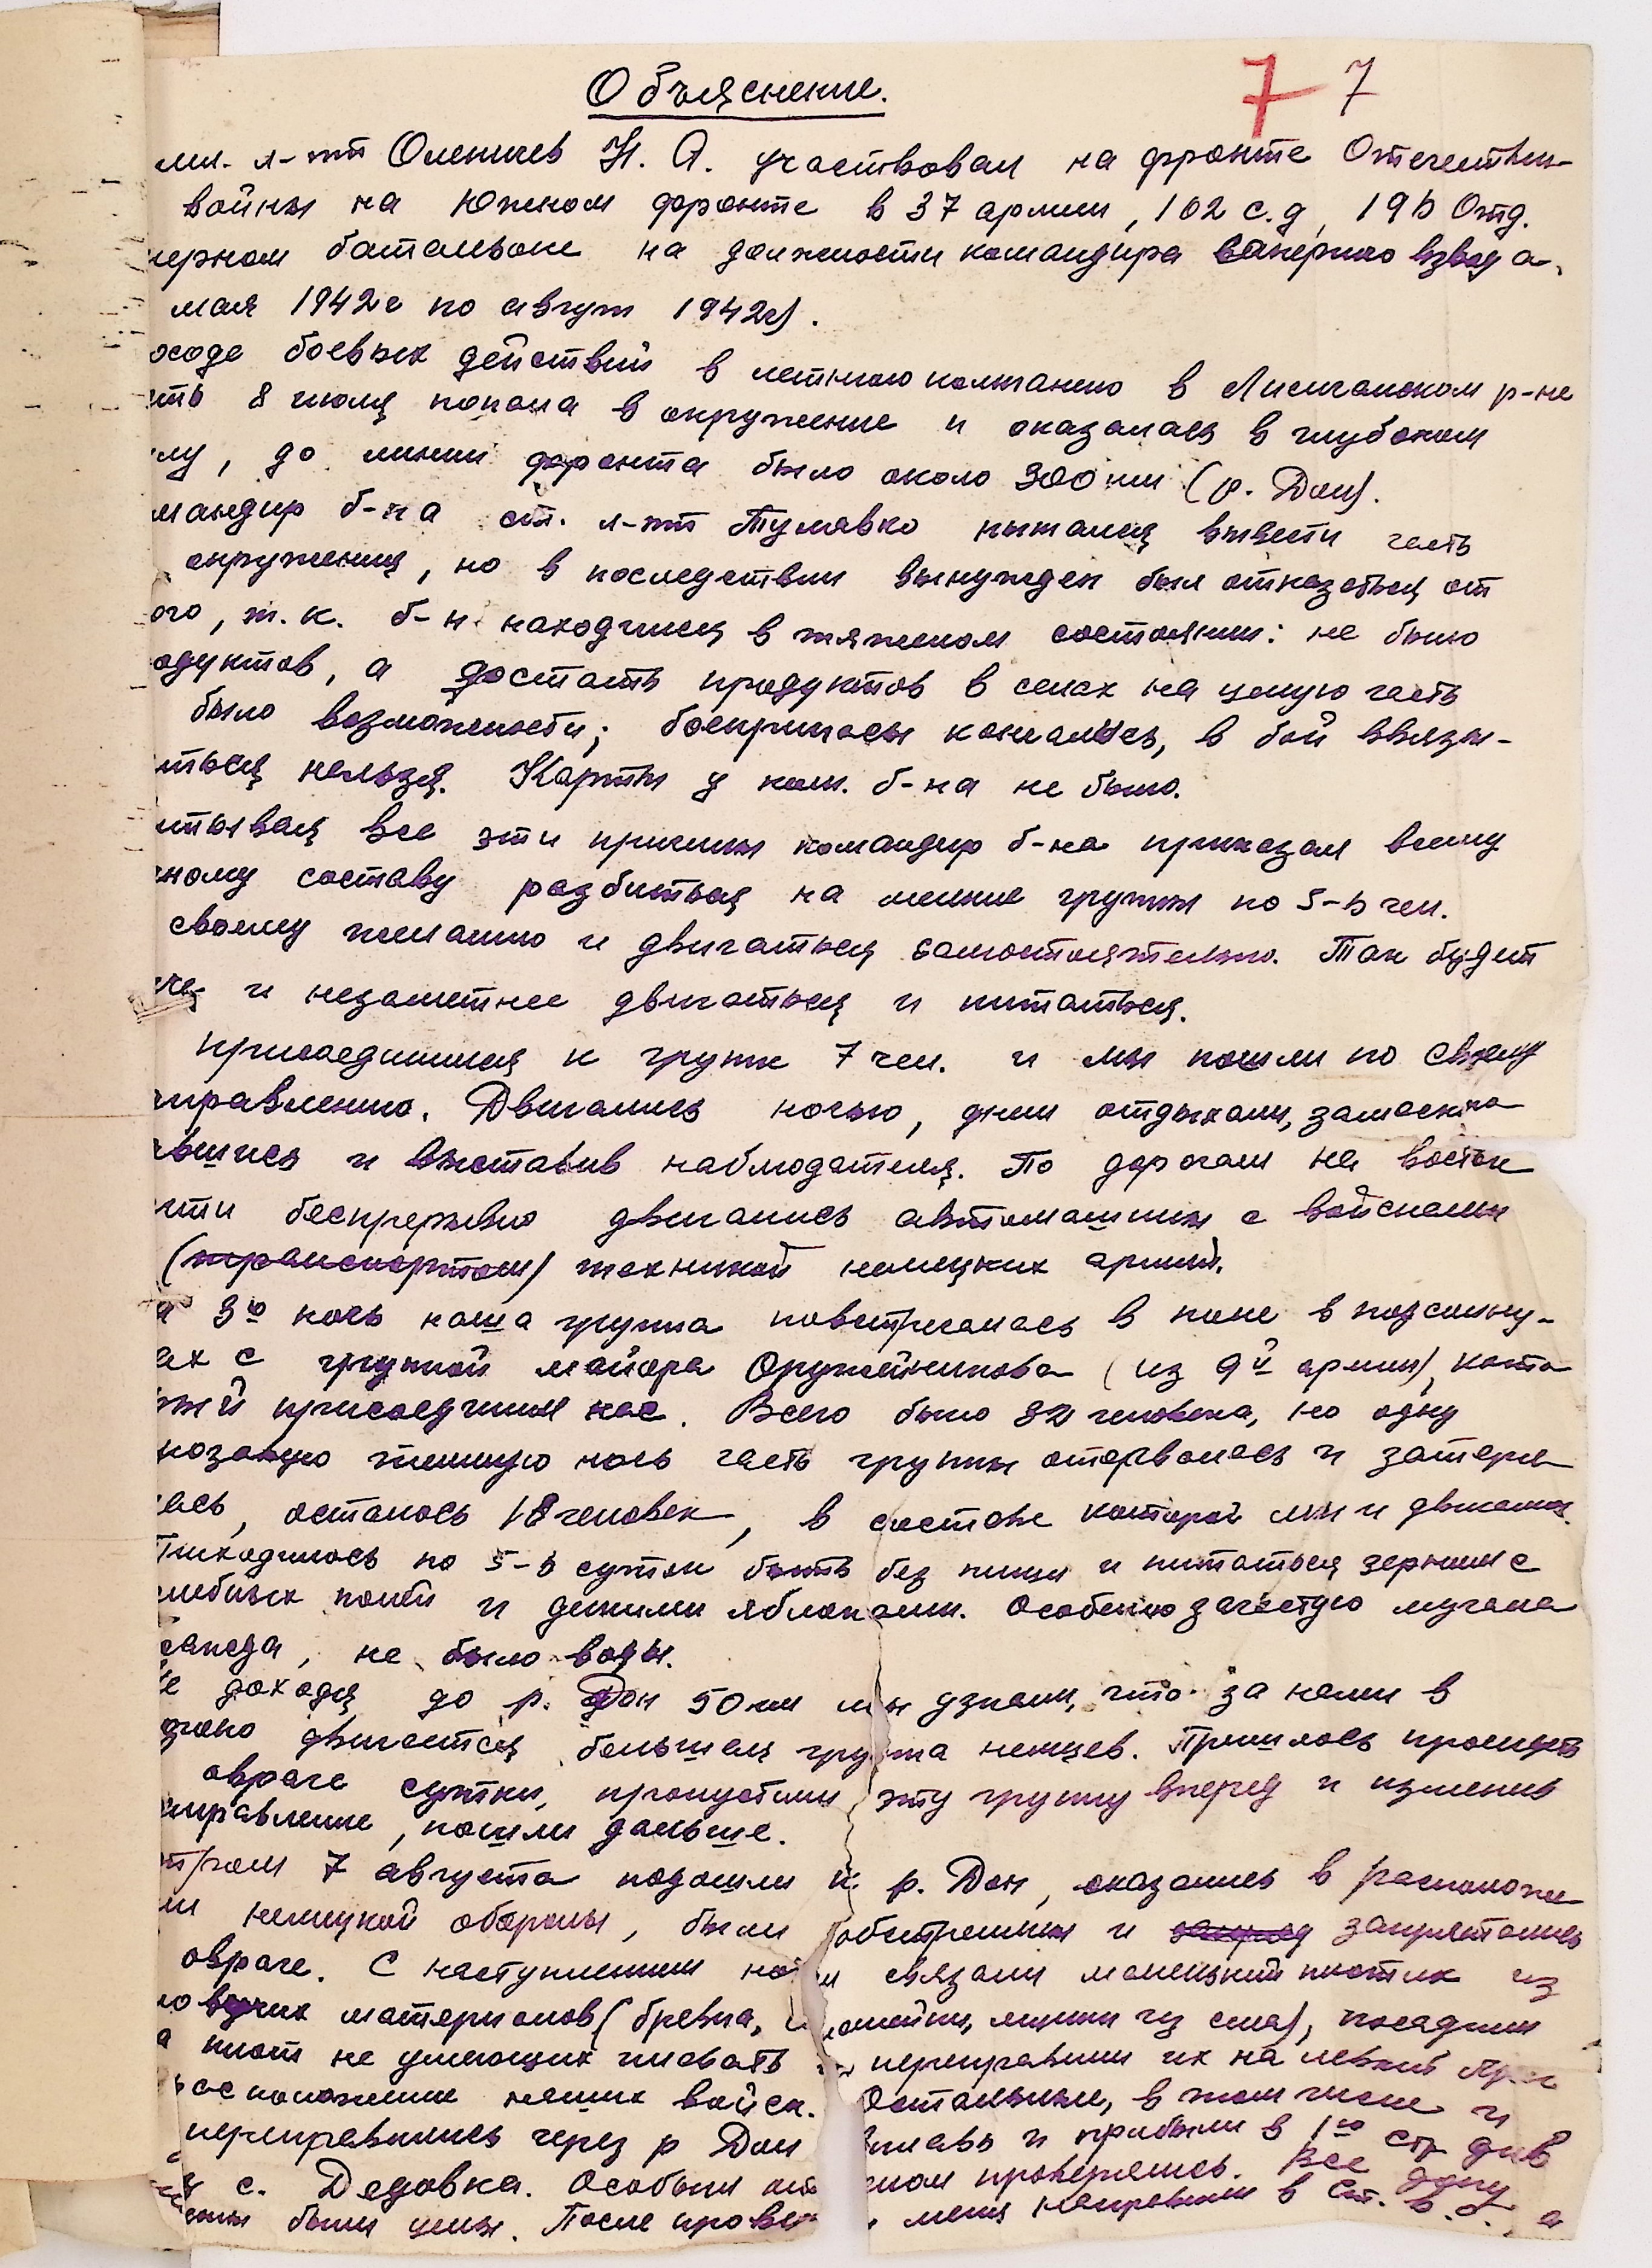 Объяснение.
7 7
мл. л-тт Оленичев Н. А. участвовал на фронте Отечествен-
войны на Южном фронте в 37 армии, 102 с.д, 196 Отд.
перном батальоне на должности командира саперного взвода.
мая 1942г по август 1942г).
оходе боевых действий в летнюю кампанию в Лисичанском р-не
сть 8 июля попала в окружение и оказалась в глубоком
лу, до линии фронта было около 300 км (р. Дон).
мандир б-на ст. л-тт Тумавко пытался вывести часть
окружения, но в последствии вынужден был отказаться от
ого, т.к. б-н находился в тяжелом состоянии: не было
одуктов, а достать продуктов в селах на целую часть
было возможности; боеприпасы кончались, в бой ввязы-
ться нельзя. Карты у ком. б-на не было.
итывая все эти причины командир б-на приказал всему
ному составу разбиться на мелкие группы по 5-6 чел.
своему желанию и двигаться самостоятельно. Так будет
че и незаметнее двигаться и питаться.
присоединился к группе 7 чел. и мы пошли по своему
правлению. Двигались ночью, днем отдыхали, замаскиро
вшись и выставив наблюдателя. По дорогам на восток
чти беспрерывно двигались автомашины с войсками
(транспортом) техникой немецких армий.
а 3ю ночь наша группа повстречалась в поле в подсолну-
ах с группой майора Оружейникова (из 9й армии), кото
рый присоединил нас. Всего было 32 человека, но одну
розовую темную ночь часть группы оторвалась и затеря
лась, осталось 18 человек, в составе которой мы и двигались.
Приходилось по 5-6 суток быть без пищи и питаться зерном с
хлебных полей и дикими яблоками. Особенно зачастую мучала
жажда, не было воды.
Не доходя до р. Дон 50 км мы узнали, что за нами в
двигается большая группа немцев. Пришлось просидеть
овраге сутки, пропустили эту группу вперед и изменив
аправление, пошли дальше.
тром 7 августа подошли к р. Дон, оказались в расположе
ии немецкой обороны, были обстреляны и запрятались
овраге. С наступлением ночи связали маленький плотик из
материалов (бревна, мешки из сена), посадили
а плот не умеющих плавать и переправили их на левый берег
расположение наших войск. Остальные, в том числе и
переправились через р Дон вплавь и прибыли в 1ю стр див
с. Дедовка. Особым отделом проверялись. Все доку
менты были целы. После проверки меня направили в ст.